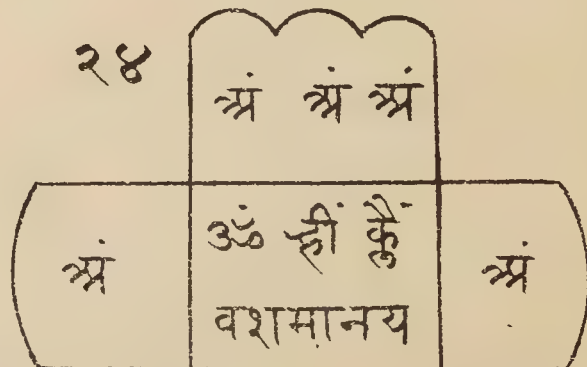 २४
अं अं अं
अं ॐ ह्रीं क्लैं अं
वशमानय